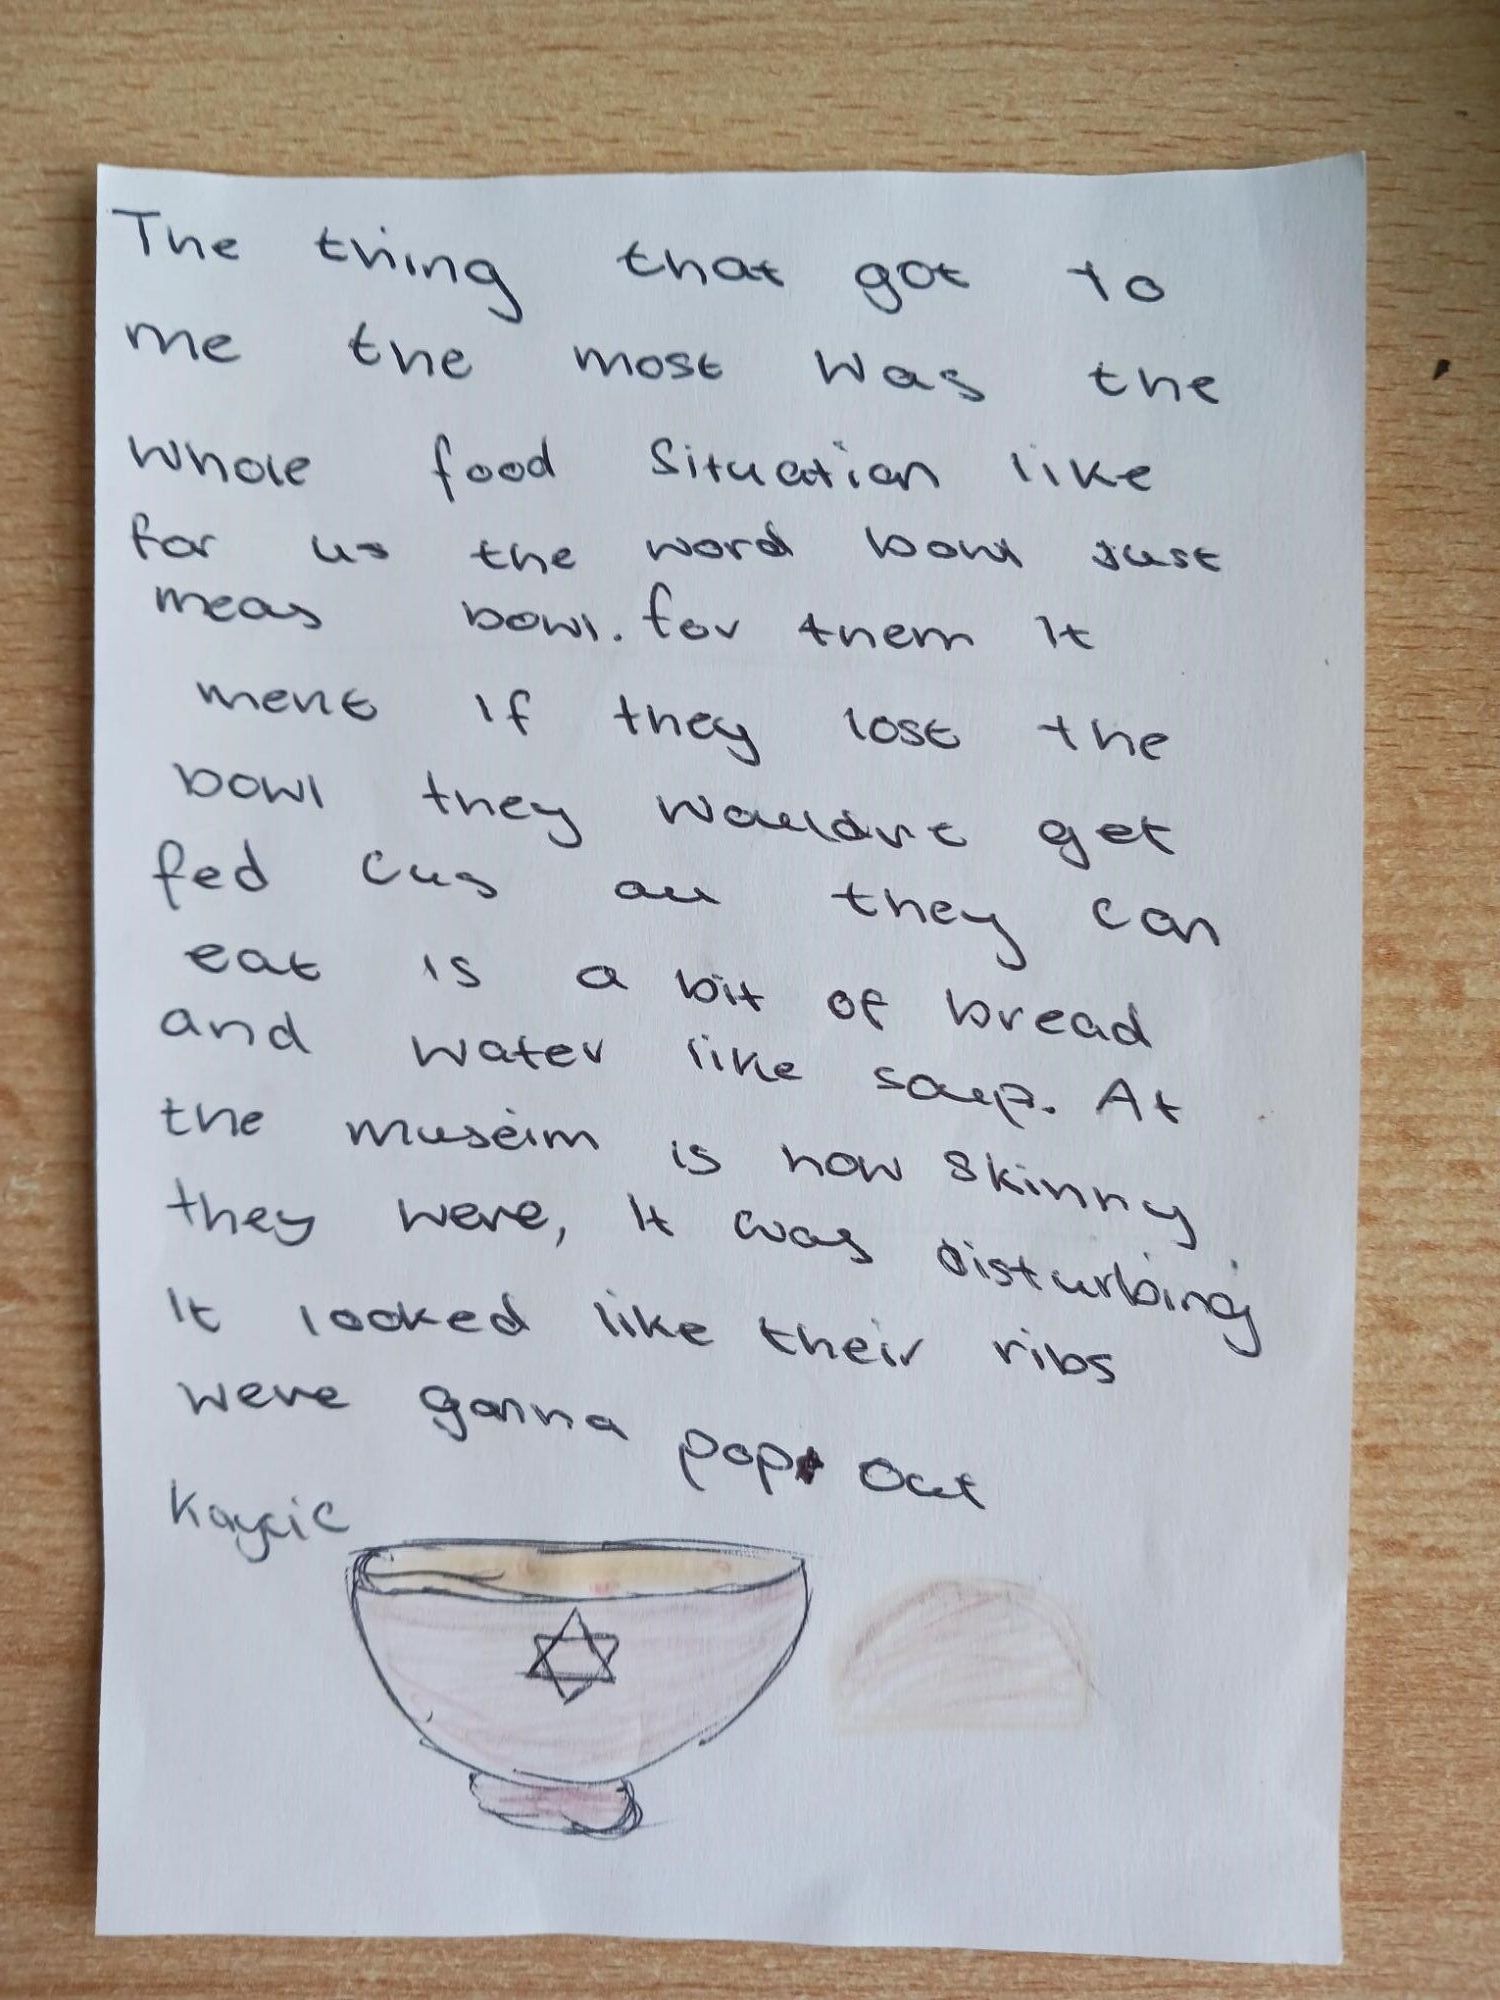 The thing that got to
me the most was the
whole food situation like
for us the word bowl just
meas bowl. for them it
ment if they lost the
bowl they wouldnt get
fed cus all they can
eat is a bit of bread
and water like soup. At
the museim is how skinny
they were, it was disturbing
it looked like their ribs
were gonna pop out
Kaycie